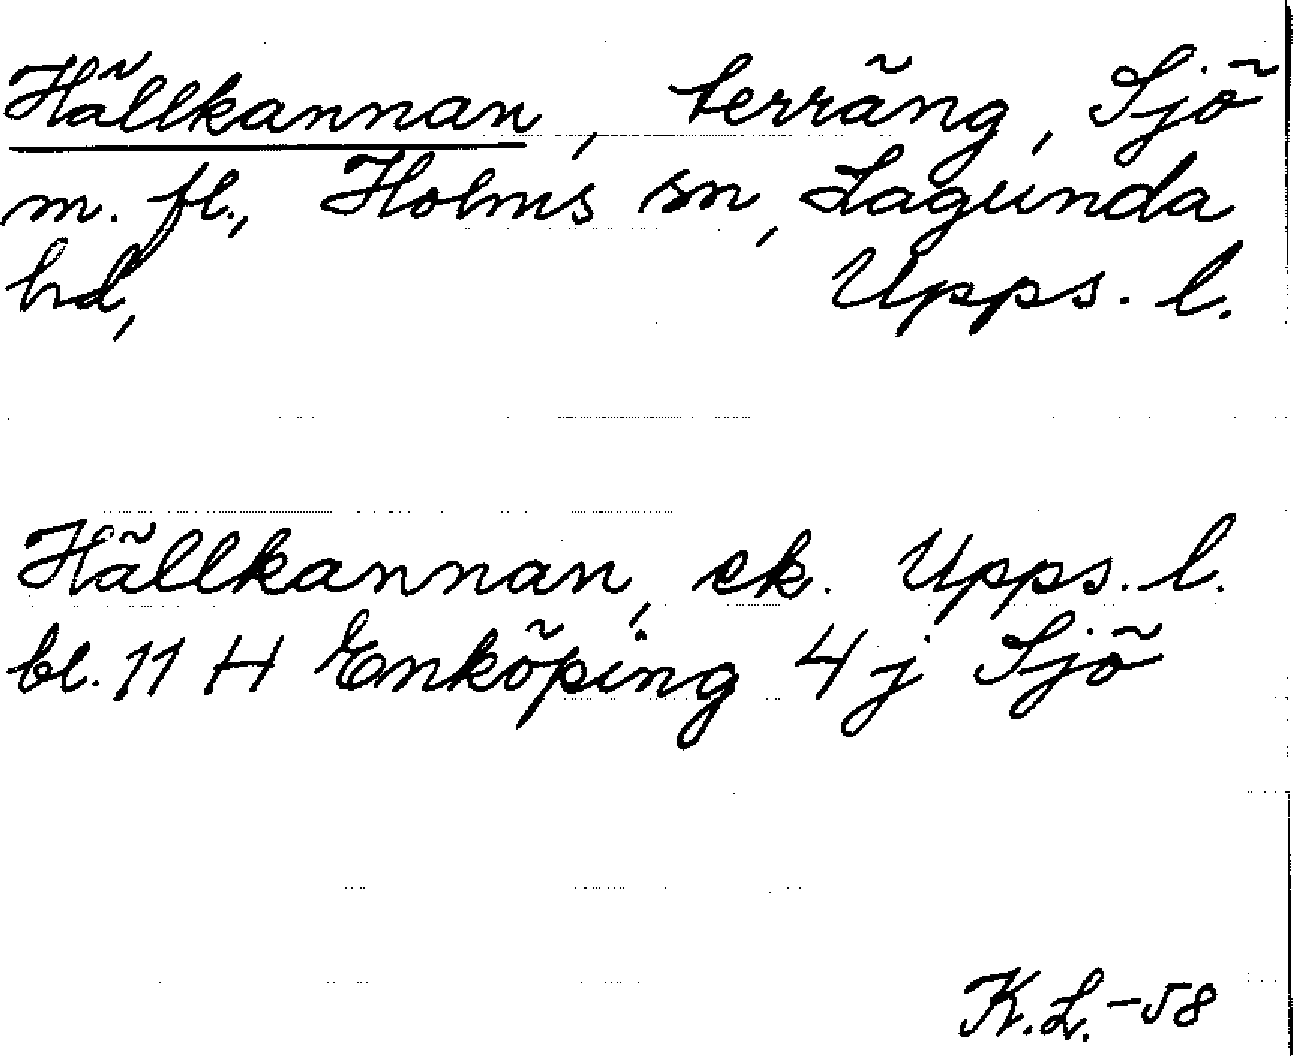 Hällkannan, terräng, Sjö
m. fl., Holms sn, Lagunda
hd, Upps. l.
Hällkannan, ek. Upps. l.
bl. 11 H Enköping 4 j Sjö
K.L. -58